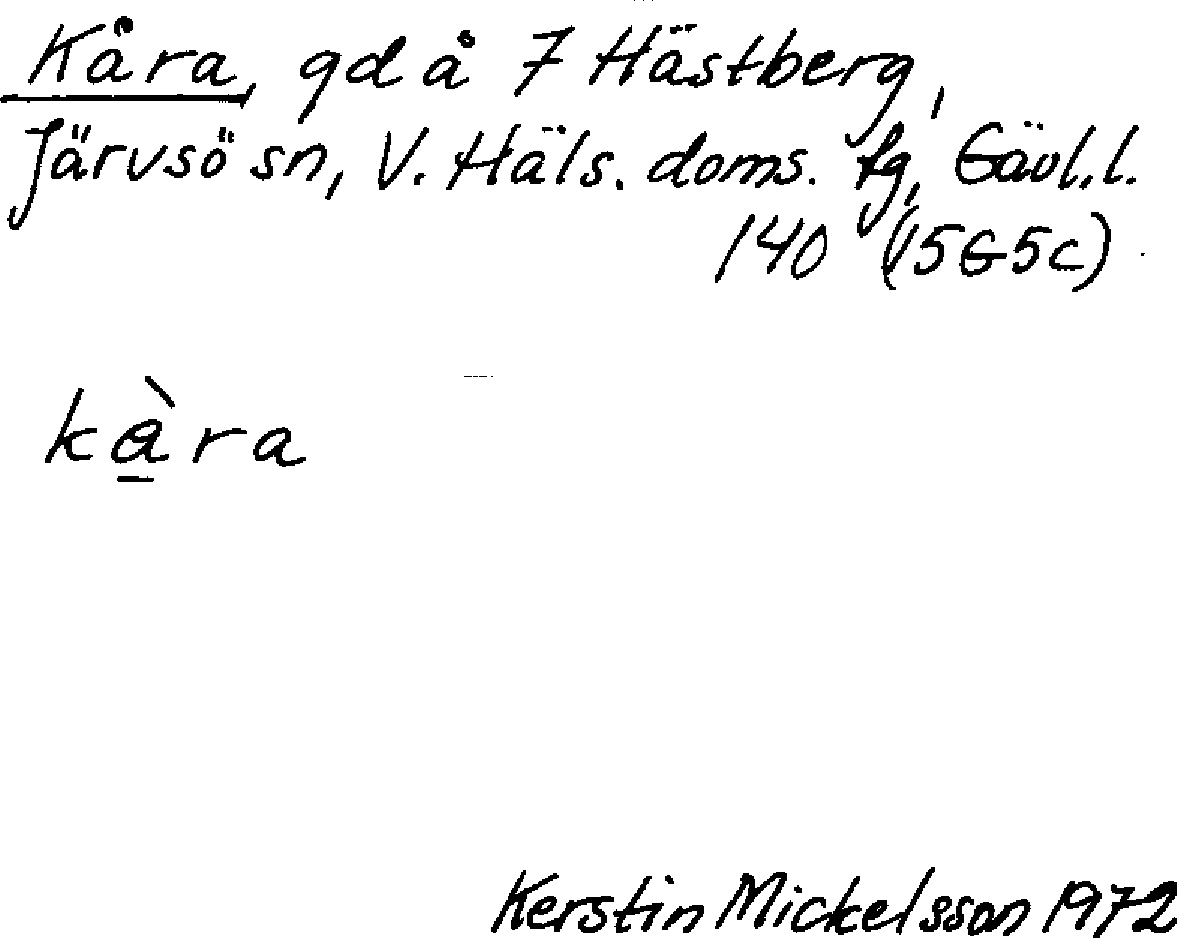 Kåra, gd å 7 Hästberg,
Järvsö sn, V. Häls. doms. tg, Gävl.l.
140 (15G5c)
kà̱ra
Kerstin Mickelsson 1972